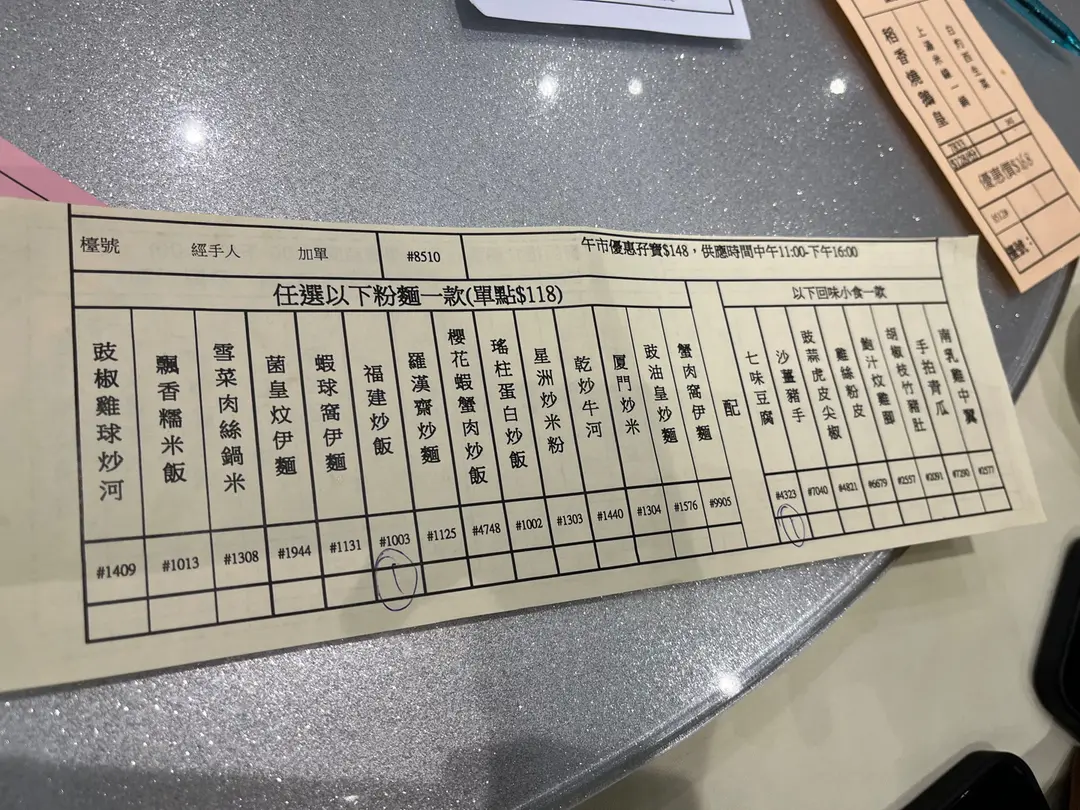 檯號 經手人 加單 #8510 午市優惠孖寶$148，供應時間中午11:00-下午16:00
任選以下粉麵一款(單點$118)
以下回味小食一款
豉椒雞球炒河 #1409
飄香糯米飯 #1013
雪菜肉絲鍋米 #1308
菌皇炆伊麵 #1944
蝦球窩伊麵 #1131
福建炒飯 #1003 1
羅漢齋炒麵 #1125
櫻花蝦蟹肉炒飯 #4748
瑤柱蛋白炒飯 #1002
星洲炒米粉 #1303
乾炒牛河 #1440
廈門炒米 #1304
豉油皇炒麵 #1576
蟹肉窩伊麵 #9905
配
七味豆腐 #4323 1
沙薑豬手 #7040
豉蒜虎皮尖椒 #4821
雞絲粉皮 #6679
鮑汁炆雞腳 #2557
胡椒枝竹豬肚 #2091
手拍青瓜 #7290
南乳雞中翼 #2577
白灼西生菜
上湯米線一鍋
稻香燒鵝皇
優惠價$168
檯號：